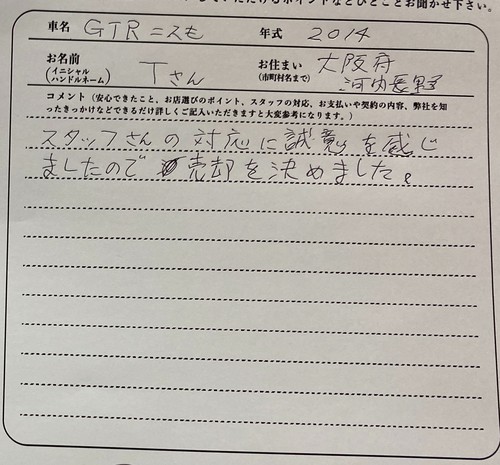 していただけるポイントなどひとことお聞かせ下さい。
車名 GTRニスモ 年式 2014
お名前 (イニシャル ハンドルネーム) Tさん お住まい (市町村名まで) 大阪府 河内長野
コメント（安心できたこと、お店選びのポイント、スタッフの対応、お支払いや契約の内容、弊社を知
ったきっかけなどできるだけ詳しくご記入いただきますと大変参考になります。）
スタッフさんの対応に誠意を感じ
ましたので売却を決めました。